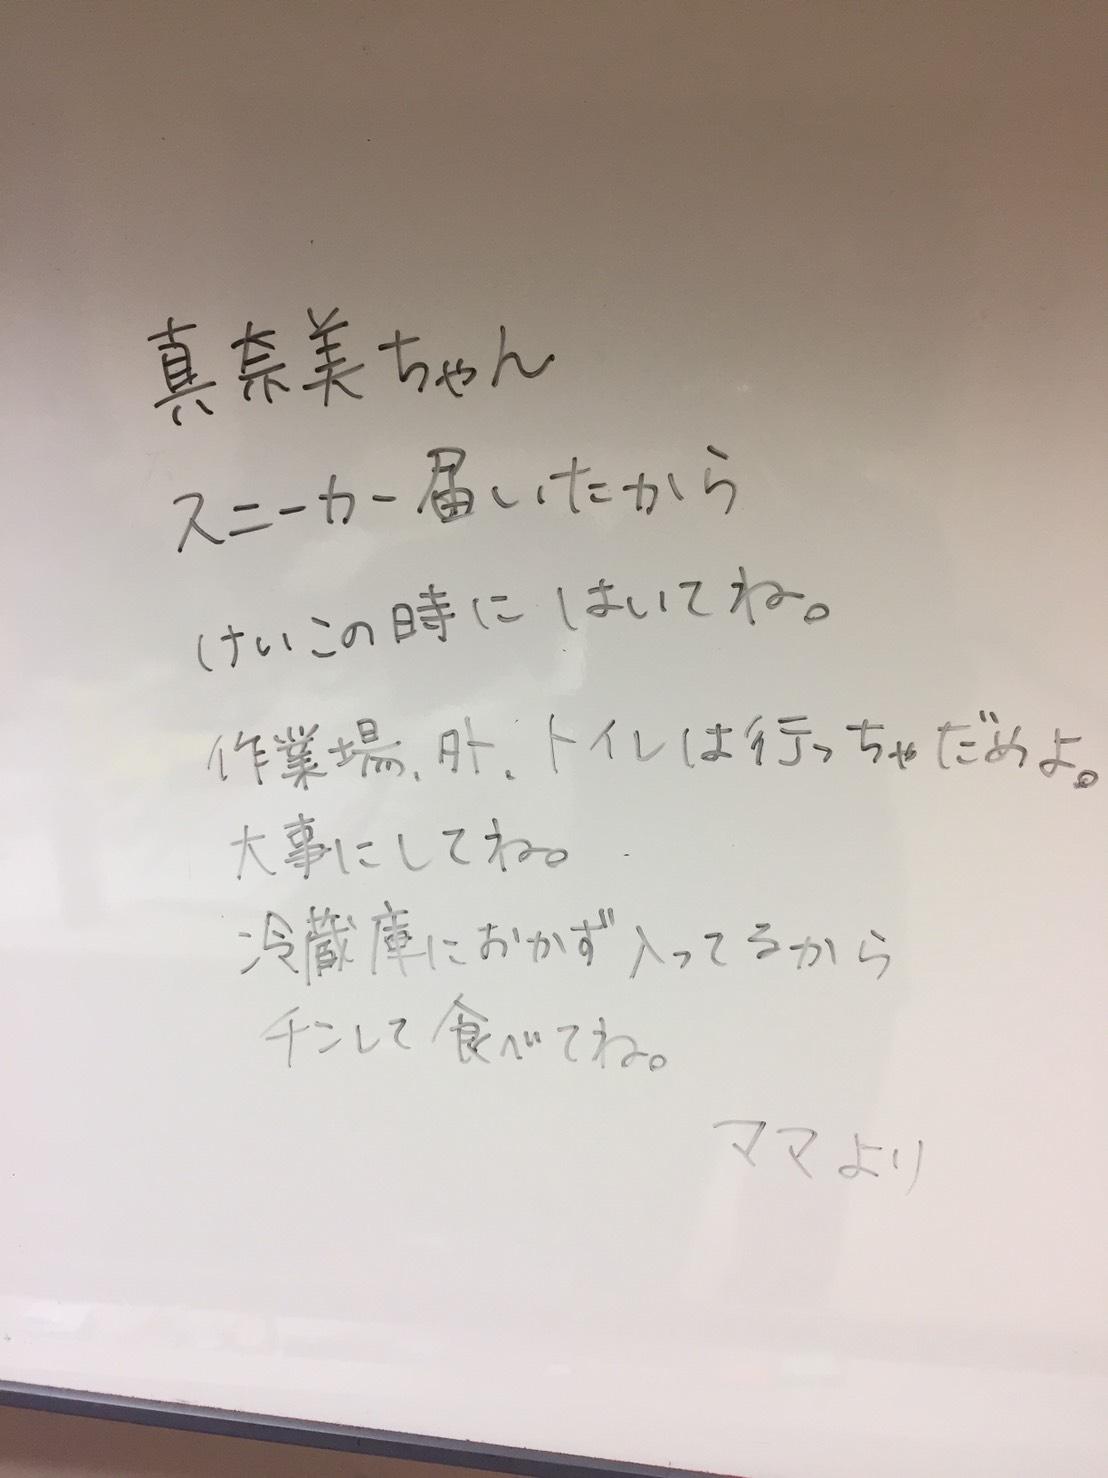 真奈美ちゃん
スニーカー届いたから
けいこの時にはいてね。
作業場、外、トイレは行っちゃだめよ。
大事にしてね。
冷蔵庫におかず入ってるから
チンして食べてね。
ママより